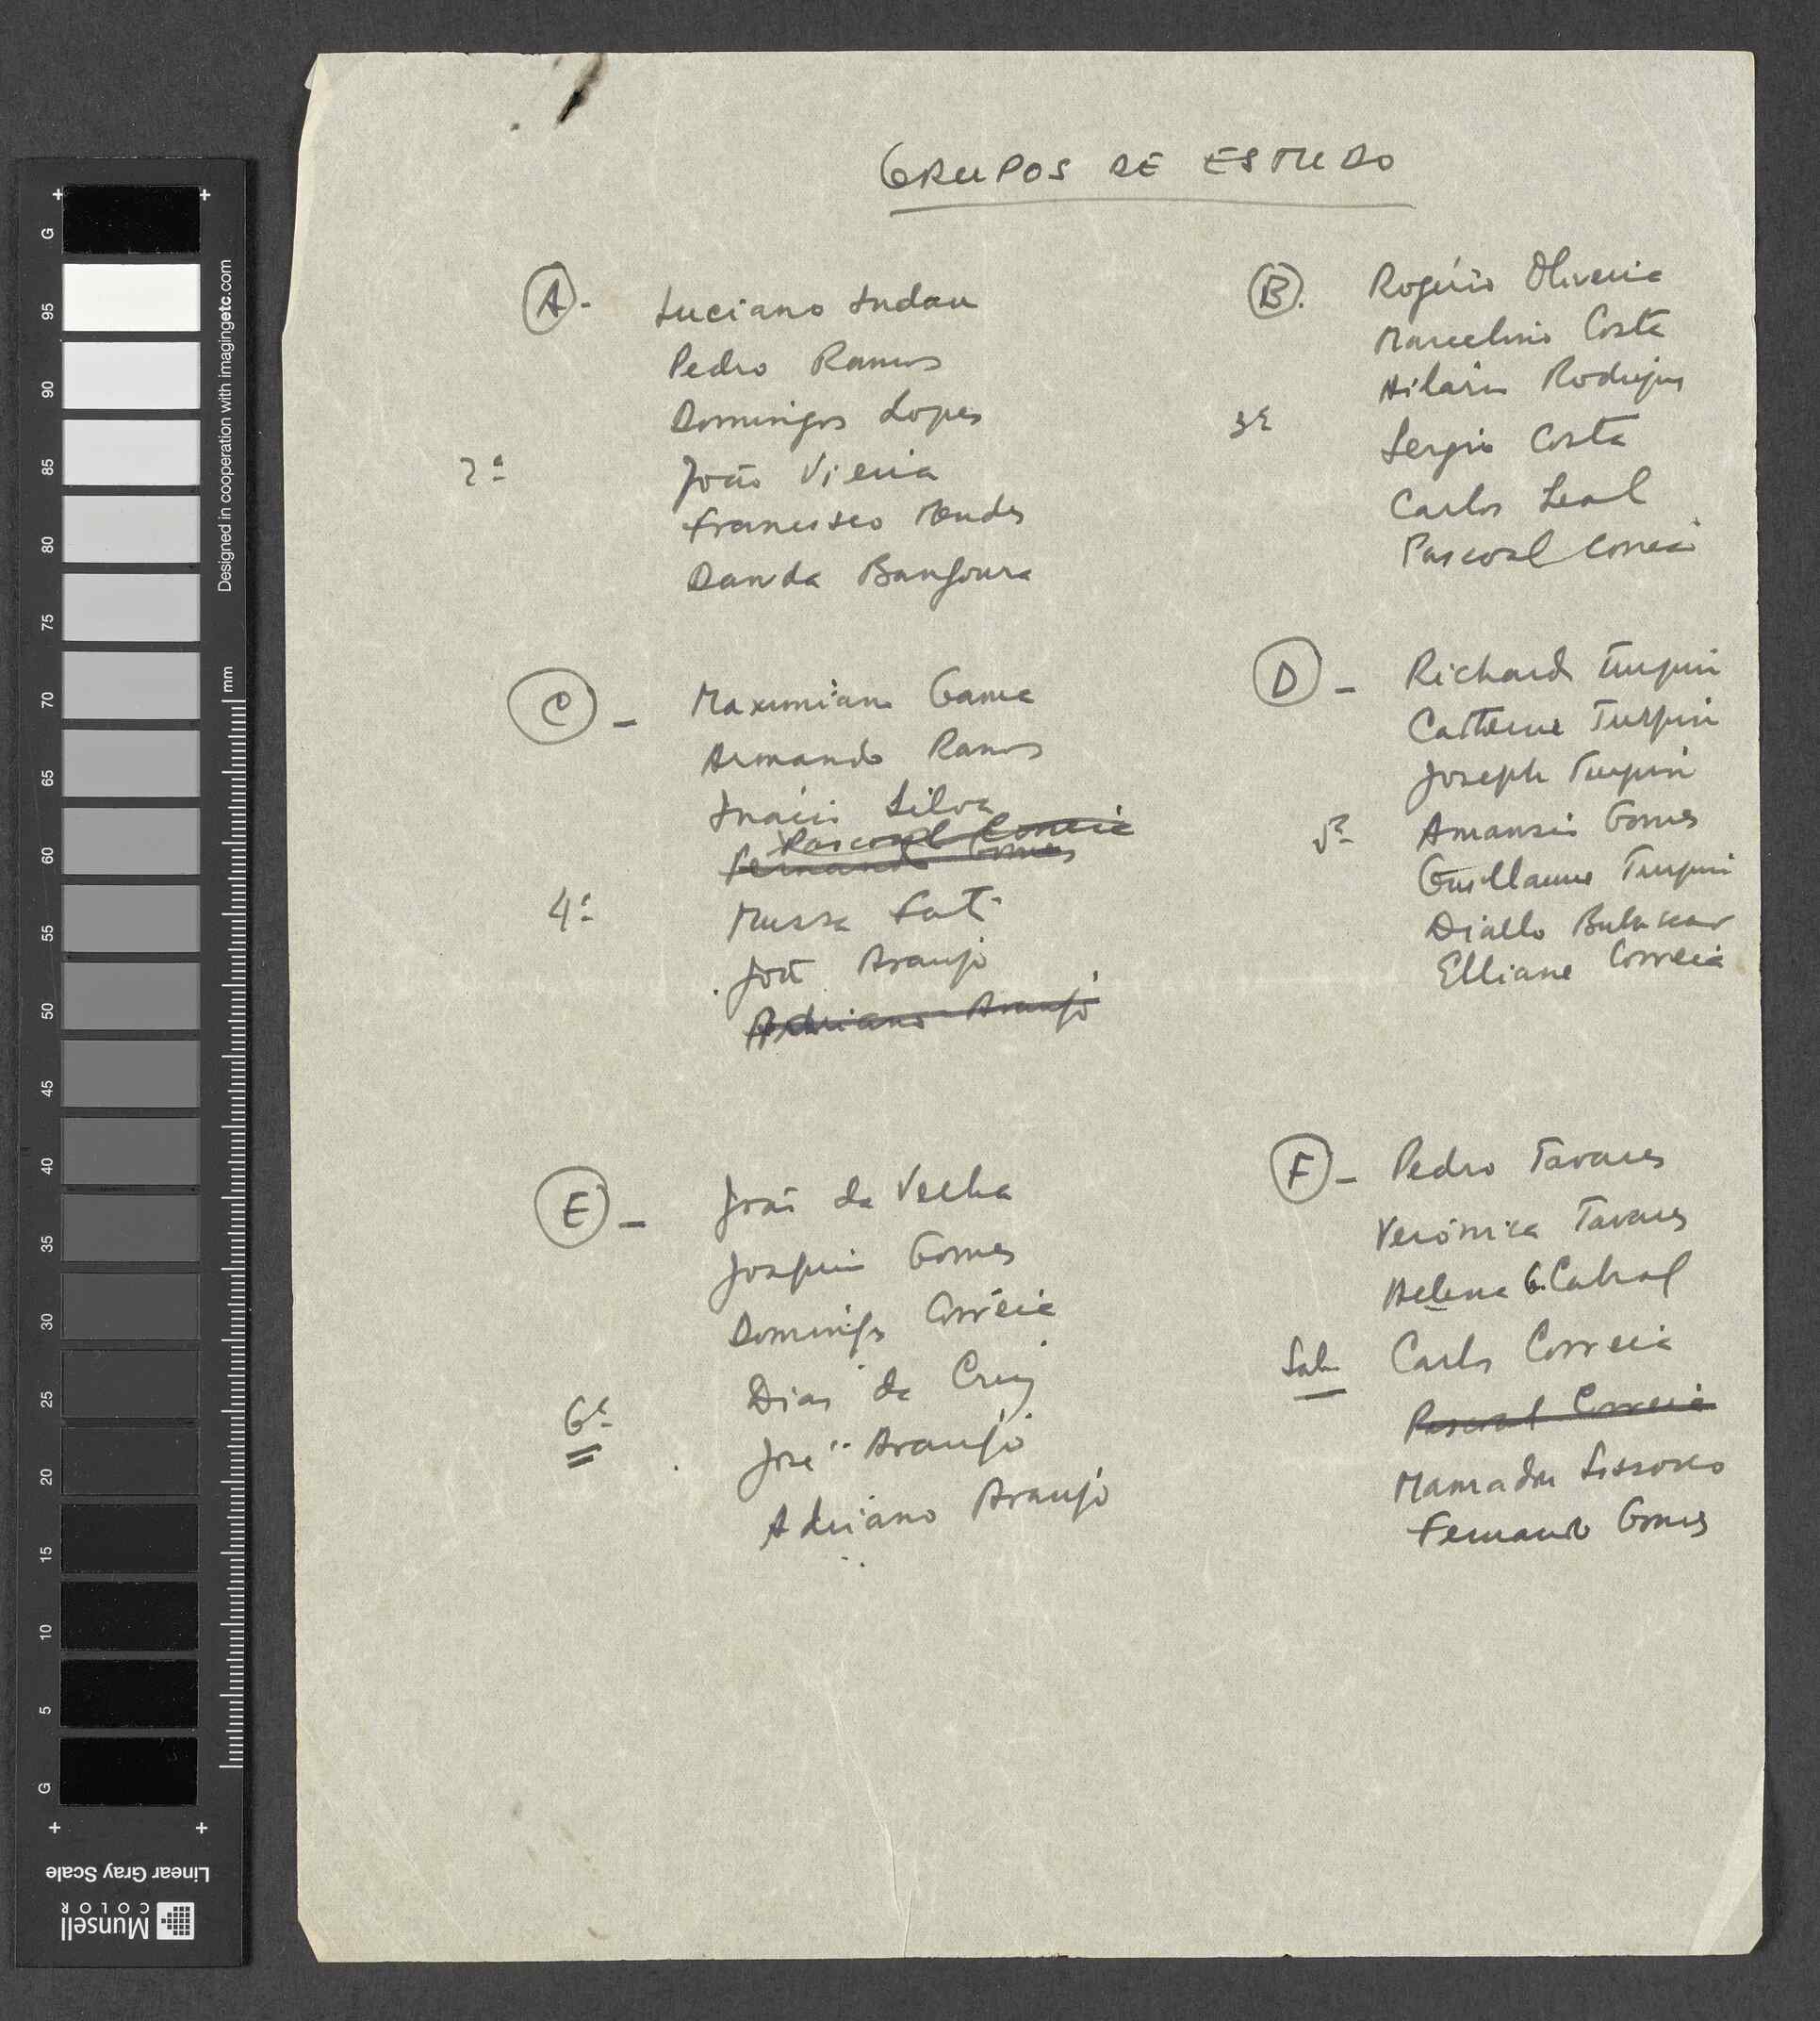 GRUPOS DE ESTUDO
A - Luciano Indau
Pedro Ramos
Domingos Lopes
2ª João Vieira
Francisco Mendes
Danda Bangoura
B. Rogério Oliveira
Marcelino Costa
Hilário Rodrigues
3ª
Sergio Costa
Carlos Leal
Pascoal Correia
C - Maximiano Gama
Armando Ramos
Inácio Silva
Pascoal Correia
Fernando Gomes
4ª Mussa Fati
João Araujo
Adriano Araujo
D - Richard Turpin
Turpin
Joseph Turpin
5ª Amansio Gomes
Guillaume Turpin
Diallo
Elliane Correia
E - João da
Joaquim Gomes
Domingos Correia
Dias da Cruz
6ª
José Araujo
Adriano Araujo
F - Pedro Tavares
Verónica Tavares
Helena G. Cabral
Sab Carlos Correia
Pascoal Correia
Mamadu Sissoko
Fernando Gomes
G 95 90 85 80 75 70 65 60 55 50 45 40 35 30 25 20 15 10 5 G
Designed in cooperation with imagingetc.com
mm
Linear Gray Scale
Munsell
COLOR